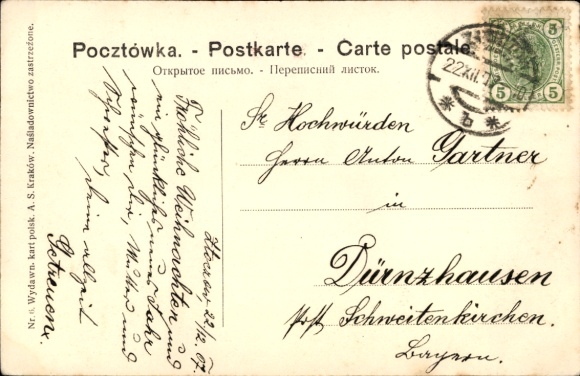 Pocztówka. - Postkarte. - Carte postale.
Открытое письмо. - Переписний листок.
5 5
5 5
22 XII 07
* b *
Sr Hochwürden
Herrn Anton Gartner
in
Dürnzhausen
Post Schweitenkirchen.
Bayern.
Złoczów 22/12 07.
Fröhliche Weihnachten und
ein glückliches neues Jahr
wünschen Dir, Mutter und
Schwester, Deine allzeit
Getreuen.
Nr. 6. Wydawn. kart polsk. A. S. Kraków. Naśladownictwo zastrzeżone.